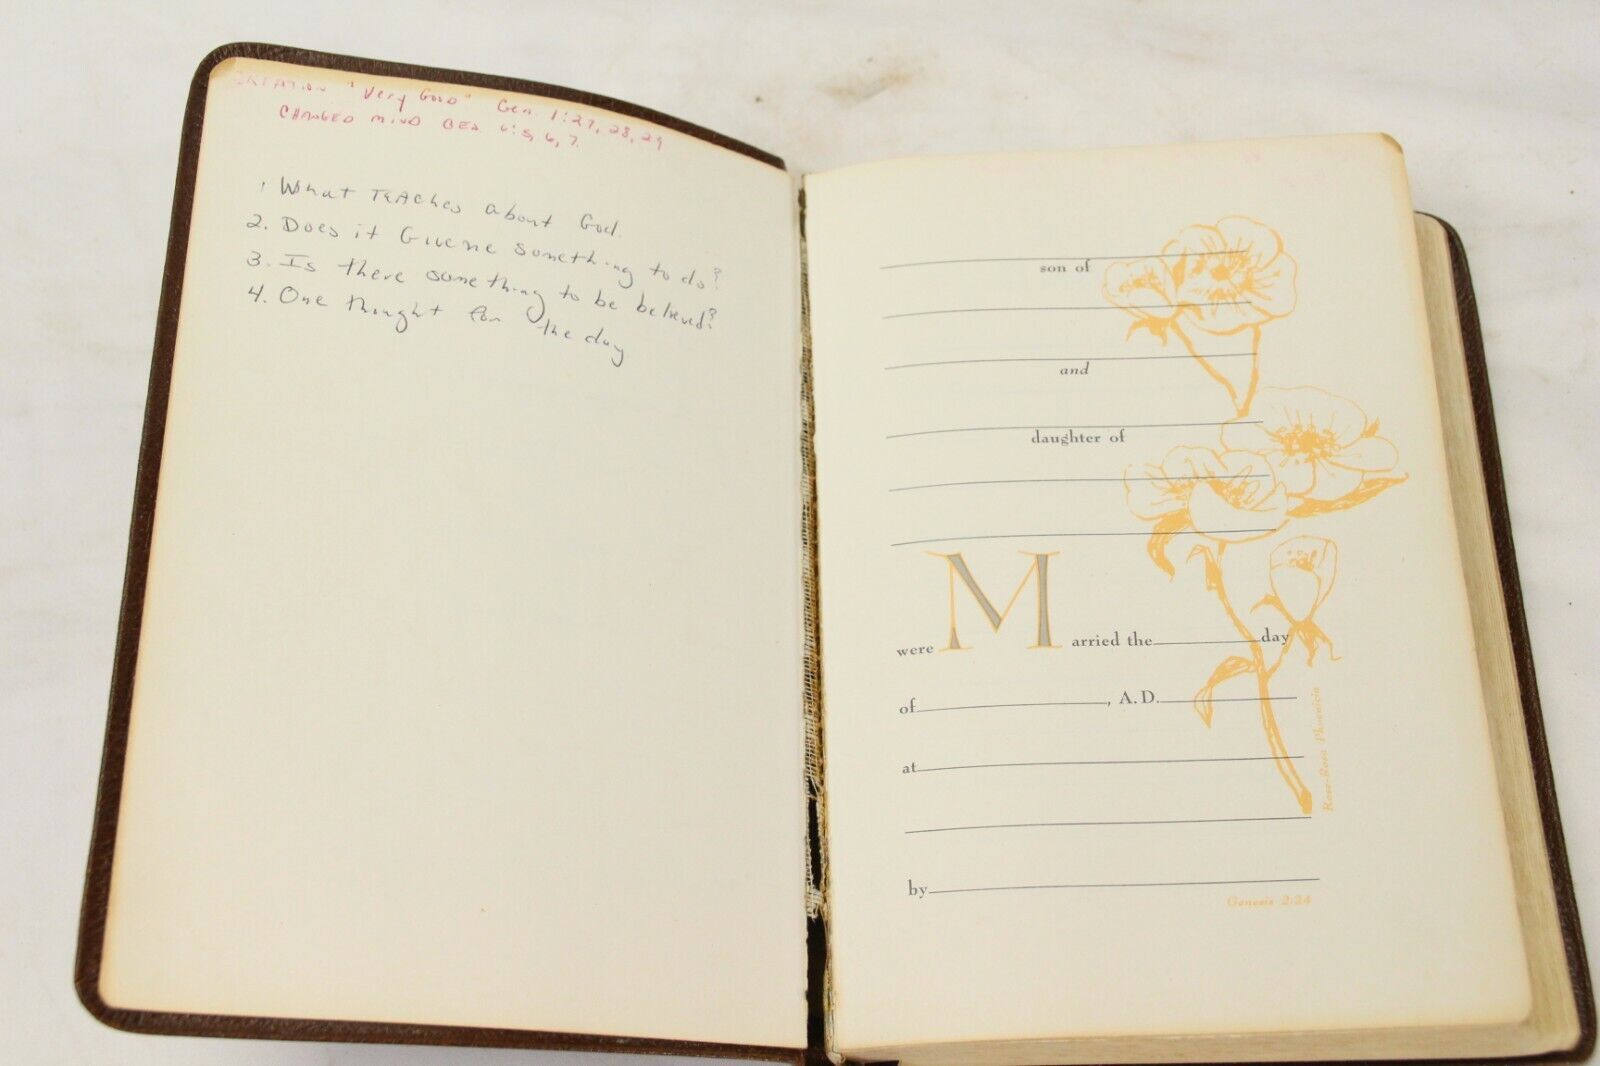 CREATION "Very Good" Gen. 1:27, 28, 29
CHANGED MIND GEN 6:5, 6, 7.
1 What TEAches about God.
2. Does it Give me something to do?
3. Is there something to be believed?
4. One thought for the day
son of
and
daughter of
were Married the day
of , A.D.
at
by
Genesis 2:24
Rose-Rosa Phoenicia